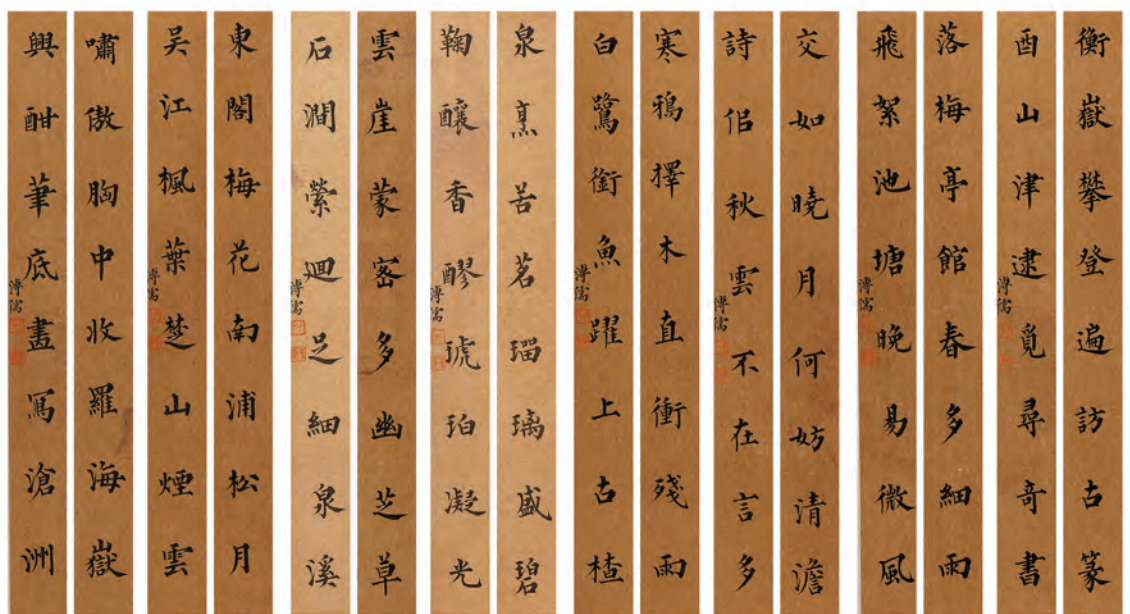 衡嶽攀登遍訪古篆
酉山津逮覓尋奇書
溥儒
落梅亭館春多細雨
飛絮池塘晚易微風
溥儒
交如曉月何妨清澹
詩侣秋雲不在言多
溥儒
寒鴉擇木直衝殘雨
白鷺銜魚躍上古楂
溥儒
泉烹苦茗瑠璃盛碧
鞠釀香醪琥珀凝光
溥儒
雲崖蒙宻多幽芝草
石澗縈迴足細泉溪
溥儒
東閣梅花南浦松月
吴江楓葉楚山煙雲
溥儒
嘯傲胸中收羅海嶽
興酣筆底畫寫滄洲
溥儒